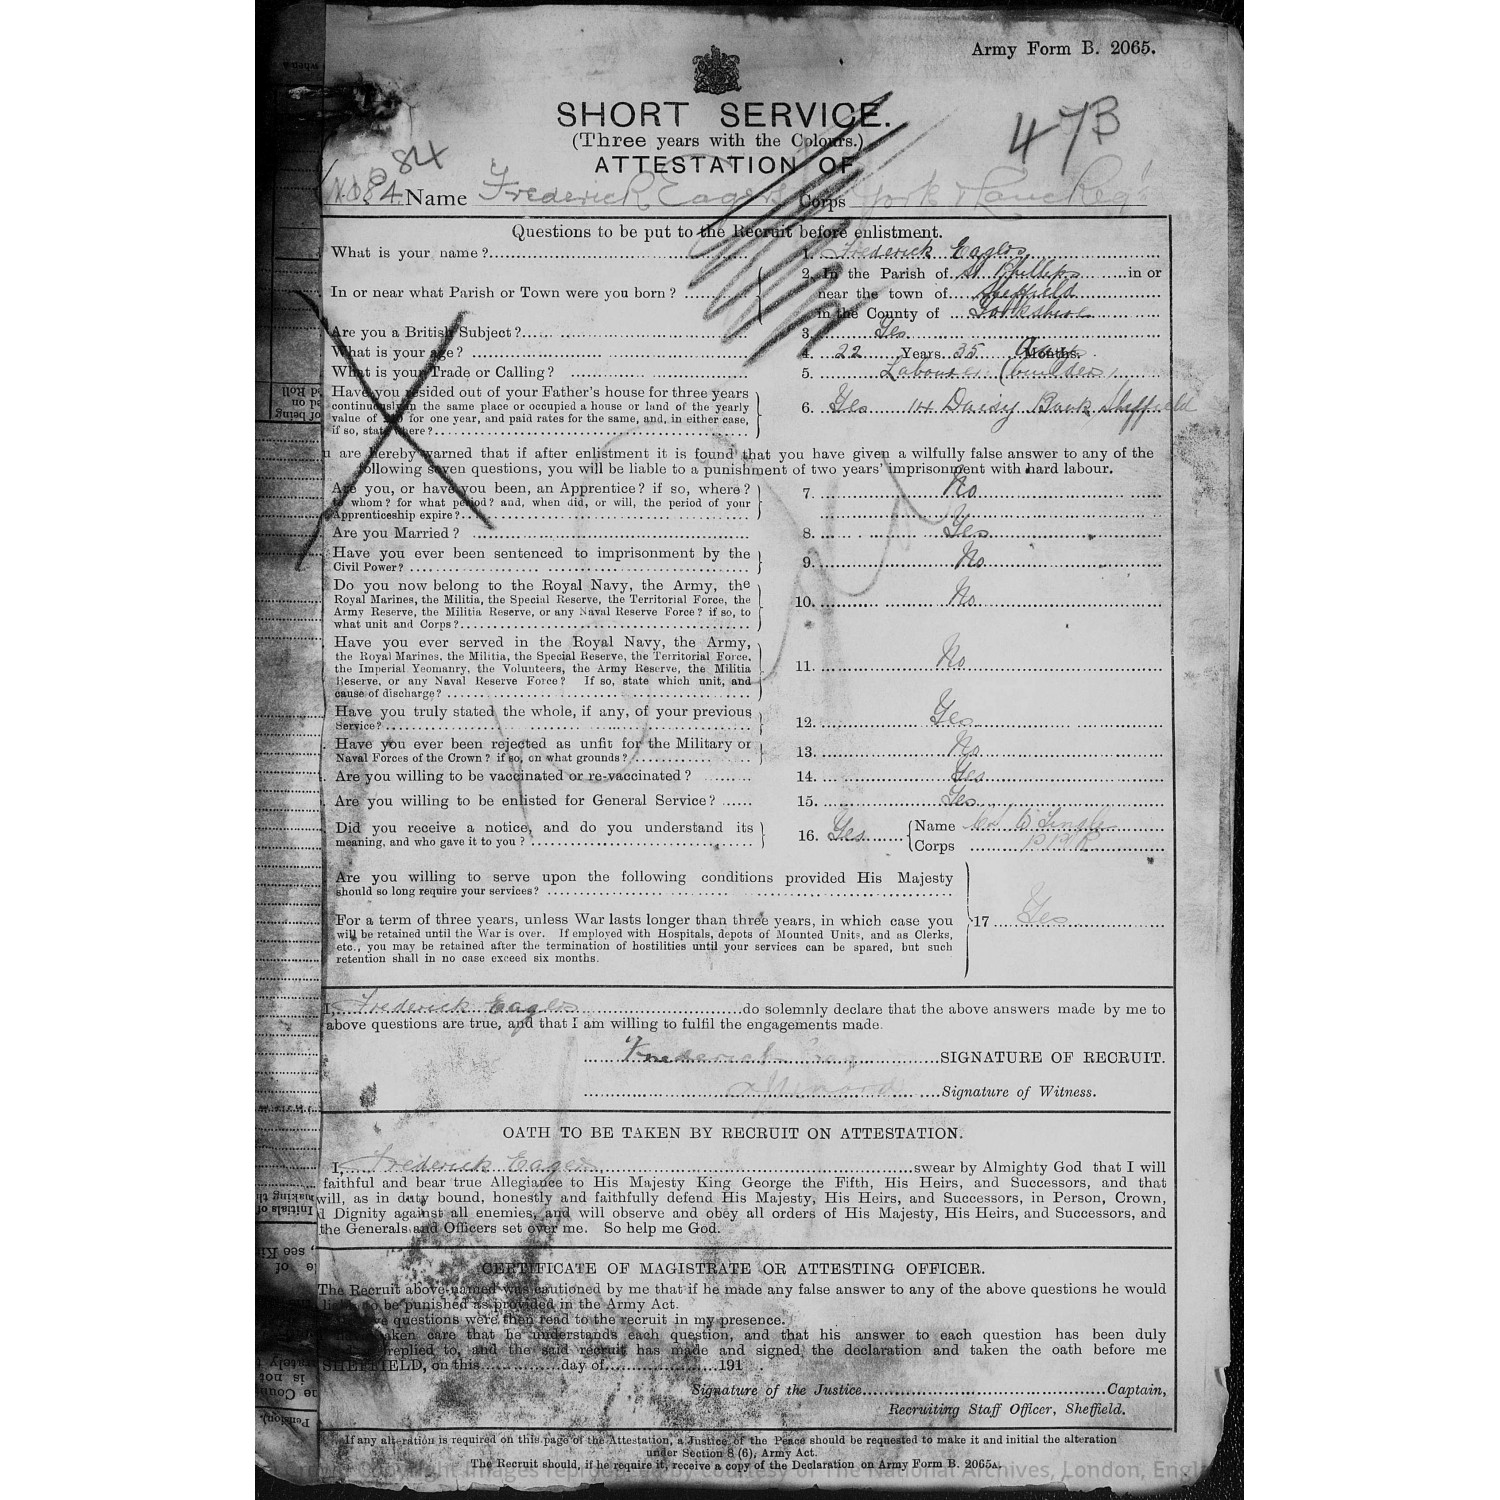 Army Form B. 2065.
SHORT SERVICE.
(Three years with the Colours.)
ATTESTATION OF
47B
84
No 84 Name Frederick Eagers Corps York & Lanc Reg
Questions to be put to the Recruit before enlistment.
What is your name? 1. Frederick Eagers
In or near what Parish or Town were you born? 2. In the Parish of St Phillips in or
near the town of Sheffield
in the County of Yorkshire
Are you a British Subject? 3. Yes
What is your age? 4. 22 Years 35 Months.
What is your Trade or Calling? 5. Labourer (builders)
Have you resided out of your Father's house for three years
continuously in the same place or occupied a house or land of the yearly
value of for one year, and paid rates for the same, and, in either case,
if so, state where? 6. Yes 114 Daisy Bank Sheffield
u are hereby warned that if after enlistment it is found that you have given a wilfully false answer to any of the
following seven questions, you will be liable to a punishment of two years' imprisonment with hard labour.
Are you, or have you been, an Apprentice? if so, where? 7. No
to whom? for what period? and, when did, or will, the period of your
Apprenticeship expire?
Are you Married? 8. Yes
Have you ever been sentenced to imprisonment by the
Civil Power? 9. No
Do you now belong to the Royal Navy, the Army, the
Royal Marines, the Militia, the Special Reserve, the Territorial Force, the
Army Reserve, the Militia Reserve, or any Naval Reserve Force? if so, to
what unit and Corps? 10. No
Have you ever served in the Royal Navy, the Army,
the Royal Marines, the Militia, the Special Reserve, the Territorial Force,
the Imperial Yeomanry, the Volunteers, the Army Reserve, the Militia
Reserve, or any Naval Reserve Force? If so, state which unit, and
cause of discharge? 11. No
Have you truly stated the whole, if any, of your previous
Service? 12. Yes
Have you ever been rejected as unfit for the Military or
Naval Forces of the Crown? if so, on what grounds? 13. No
Are you willing to be vaccinated or re-vaccinated? 14. Yes
Are you willing to be enlisted for General Service? 15. Yes
Did you receive a notice, and do you understand its
meaning, and who gave it to you? 16. Yes Name
Corps
Are you willing to serve upon the following conditions provided His Majesty
should so long require your services?
For a term of three years, unless War lasts longer than three years, in which case you 17 Yes
will be retained until the War is over. If employed with Hospitals, depots of Mounted Units, and as Clerks,
etc., you may be retained after the termination of hostilities until your services can be spared, but such
retention shall in no case exceed six months.
I, Frederick Eagers do solemnly declare that the above answers made by me to
above questions are true, and that I am willing to fulfil the engagements made.
Frederick SIGNATURE OF RECRUIT.
Signature of Witness.
OATH TO BE TAKEN BY RECRUIT ON ATTESTATION.
I, Frederick Eagers swear by Almighty God that I will
faithful and bear true Allegiance to His Majesty King George the Fifth, His Heirs, and Successors, and that
will, as in duty bound, honestly and faithfully defend His Majesty, His Heirs, and Successors, in Person, Crown,
d Dignity against all enemies, and will observe and obey all orders of His Majesty, His Heirs, and Successors, and
the Generals and Officers set over me. So help me God.
CERTIFICATE OF MAGISTRATE OR ATTESTING OFFICER.
The Recruit above-named was cautioned by me that if he made any false answer to any of the above questions he would
to be punished as provided in the Army Act.
questions were then read to the recruit in my presence.
taken care that he understands each question, and that his answer to each question has been duly
replied to, and the said recruit has made and signed the declaration and taken the oath before me
SHEFFIELD, on this day of 191 .
Signature of the Justice Captain,
Recruiting Staff Officer, Sheffield.
If any alteration is required on this page of the Attestation, a Justice of the Peace should be requested to make it and initial the alteration
under Section 8 (6), Army Act.
The Recruit should, if he require it, receive a copy of the Declaration on Army Form B. 2065A.
Crown Copyright Images reproduced by courtesy of The National Archives, London, Engl